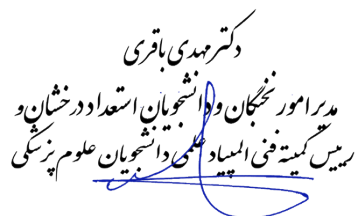 دکتر مهدی باقری
مدیر امور نخبگان و دانشجویان استعداد درخشان و
رییس کمیته فنی المپیاد علمی دانشجویان علوم پزشکی